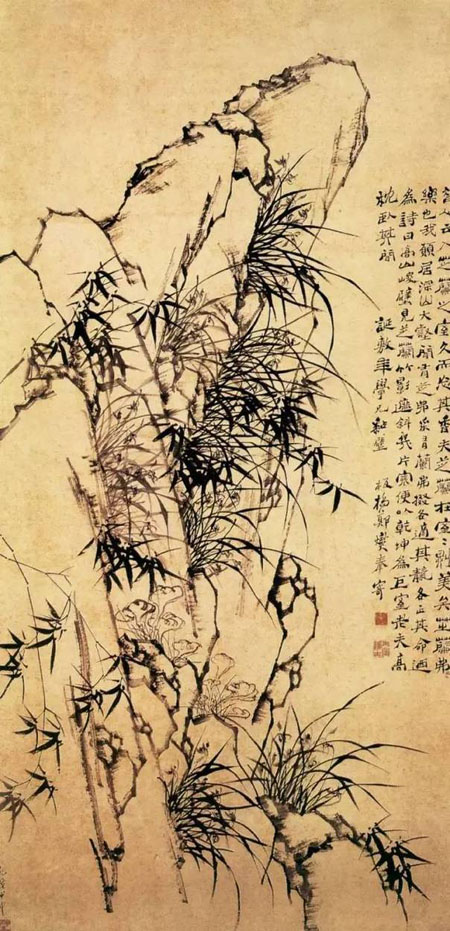 人云入芝蘭之室久而忘其香夫芝蘭在室〻則美矣芝蘭弗
樂也我願居深山大壑間有芝弗采有蘭弗掇各適其各正其命迺
為詩曰高山峻壁見芝蘭竹影遮斜幾片寒便以乾坤為巨室老夫高
枕臥其間 誕敷年學兄 板橋鄭燮奉寄